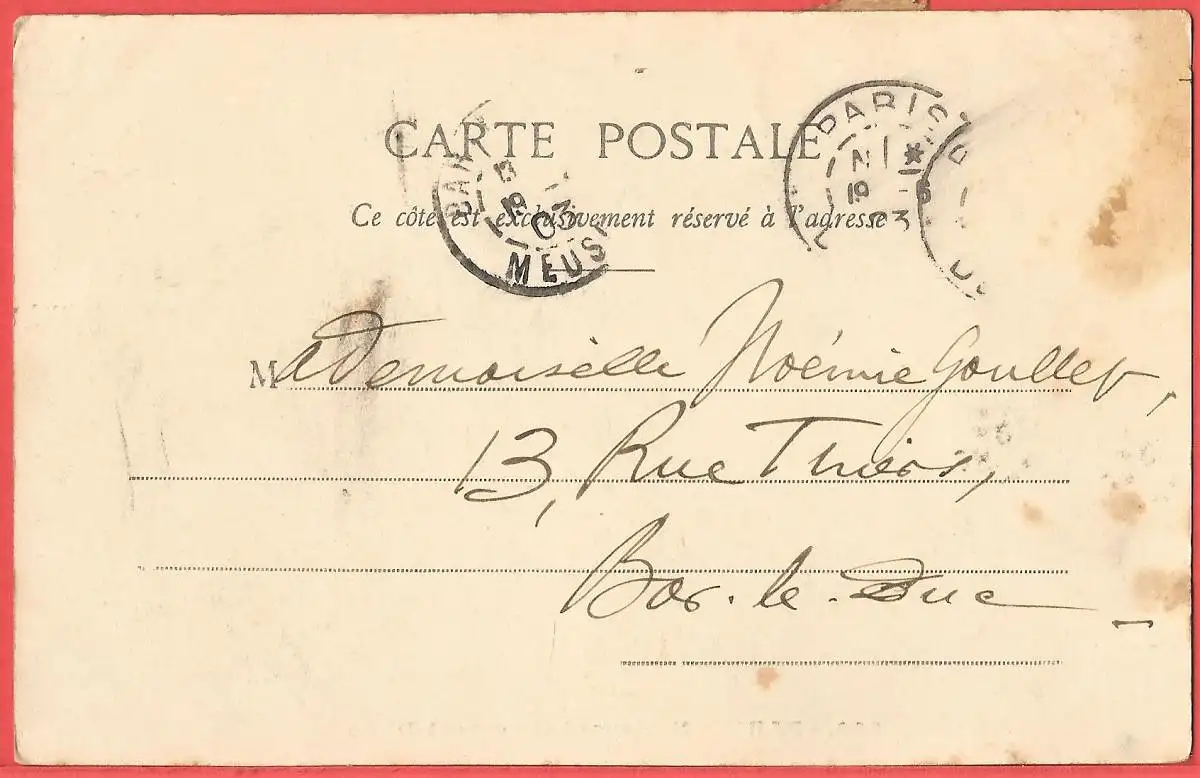 CARTE POSTALE
Ce côté est exclusivement réservé à l'adresse
PARIS
19
03
MEUS
Mademoiselle Noémie Goullet,
13, Rue Thiers,
Bar-le-Duc